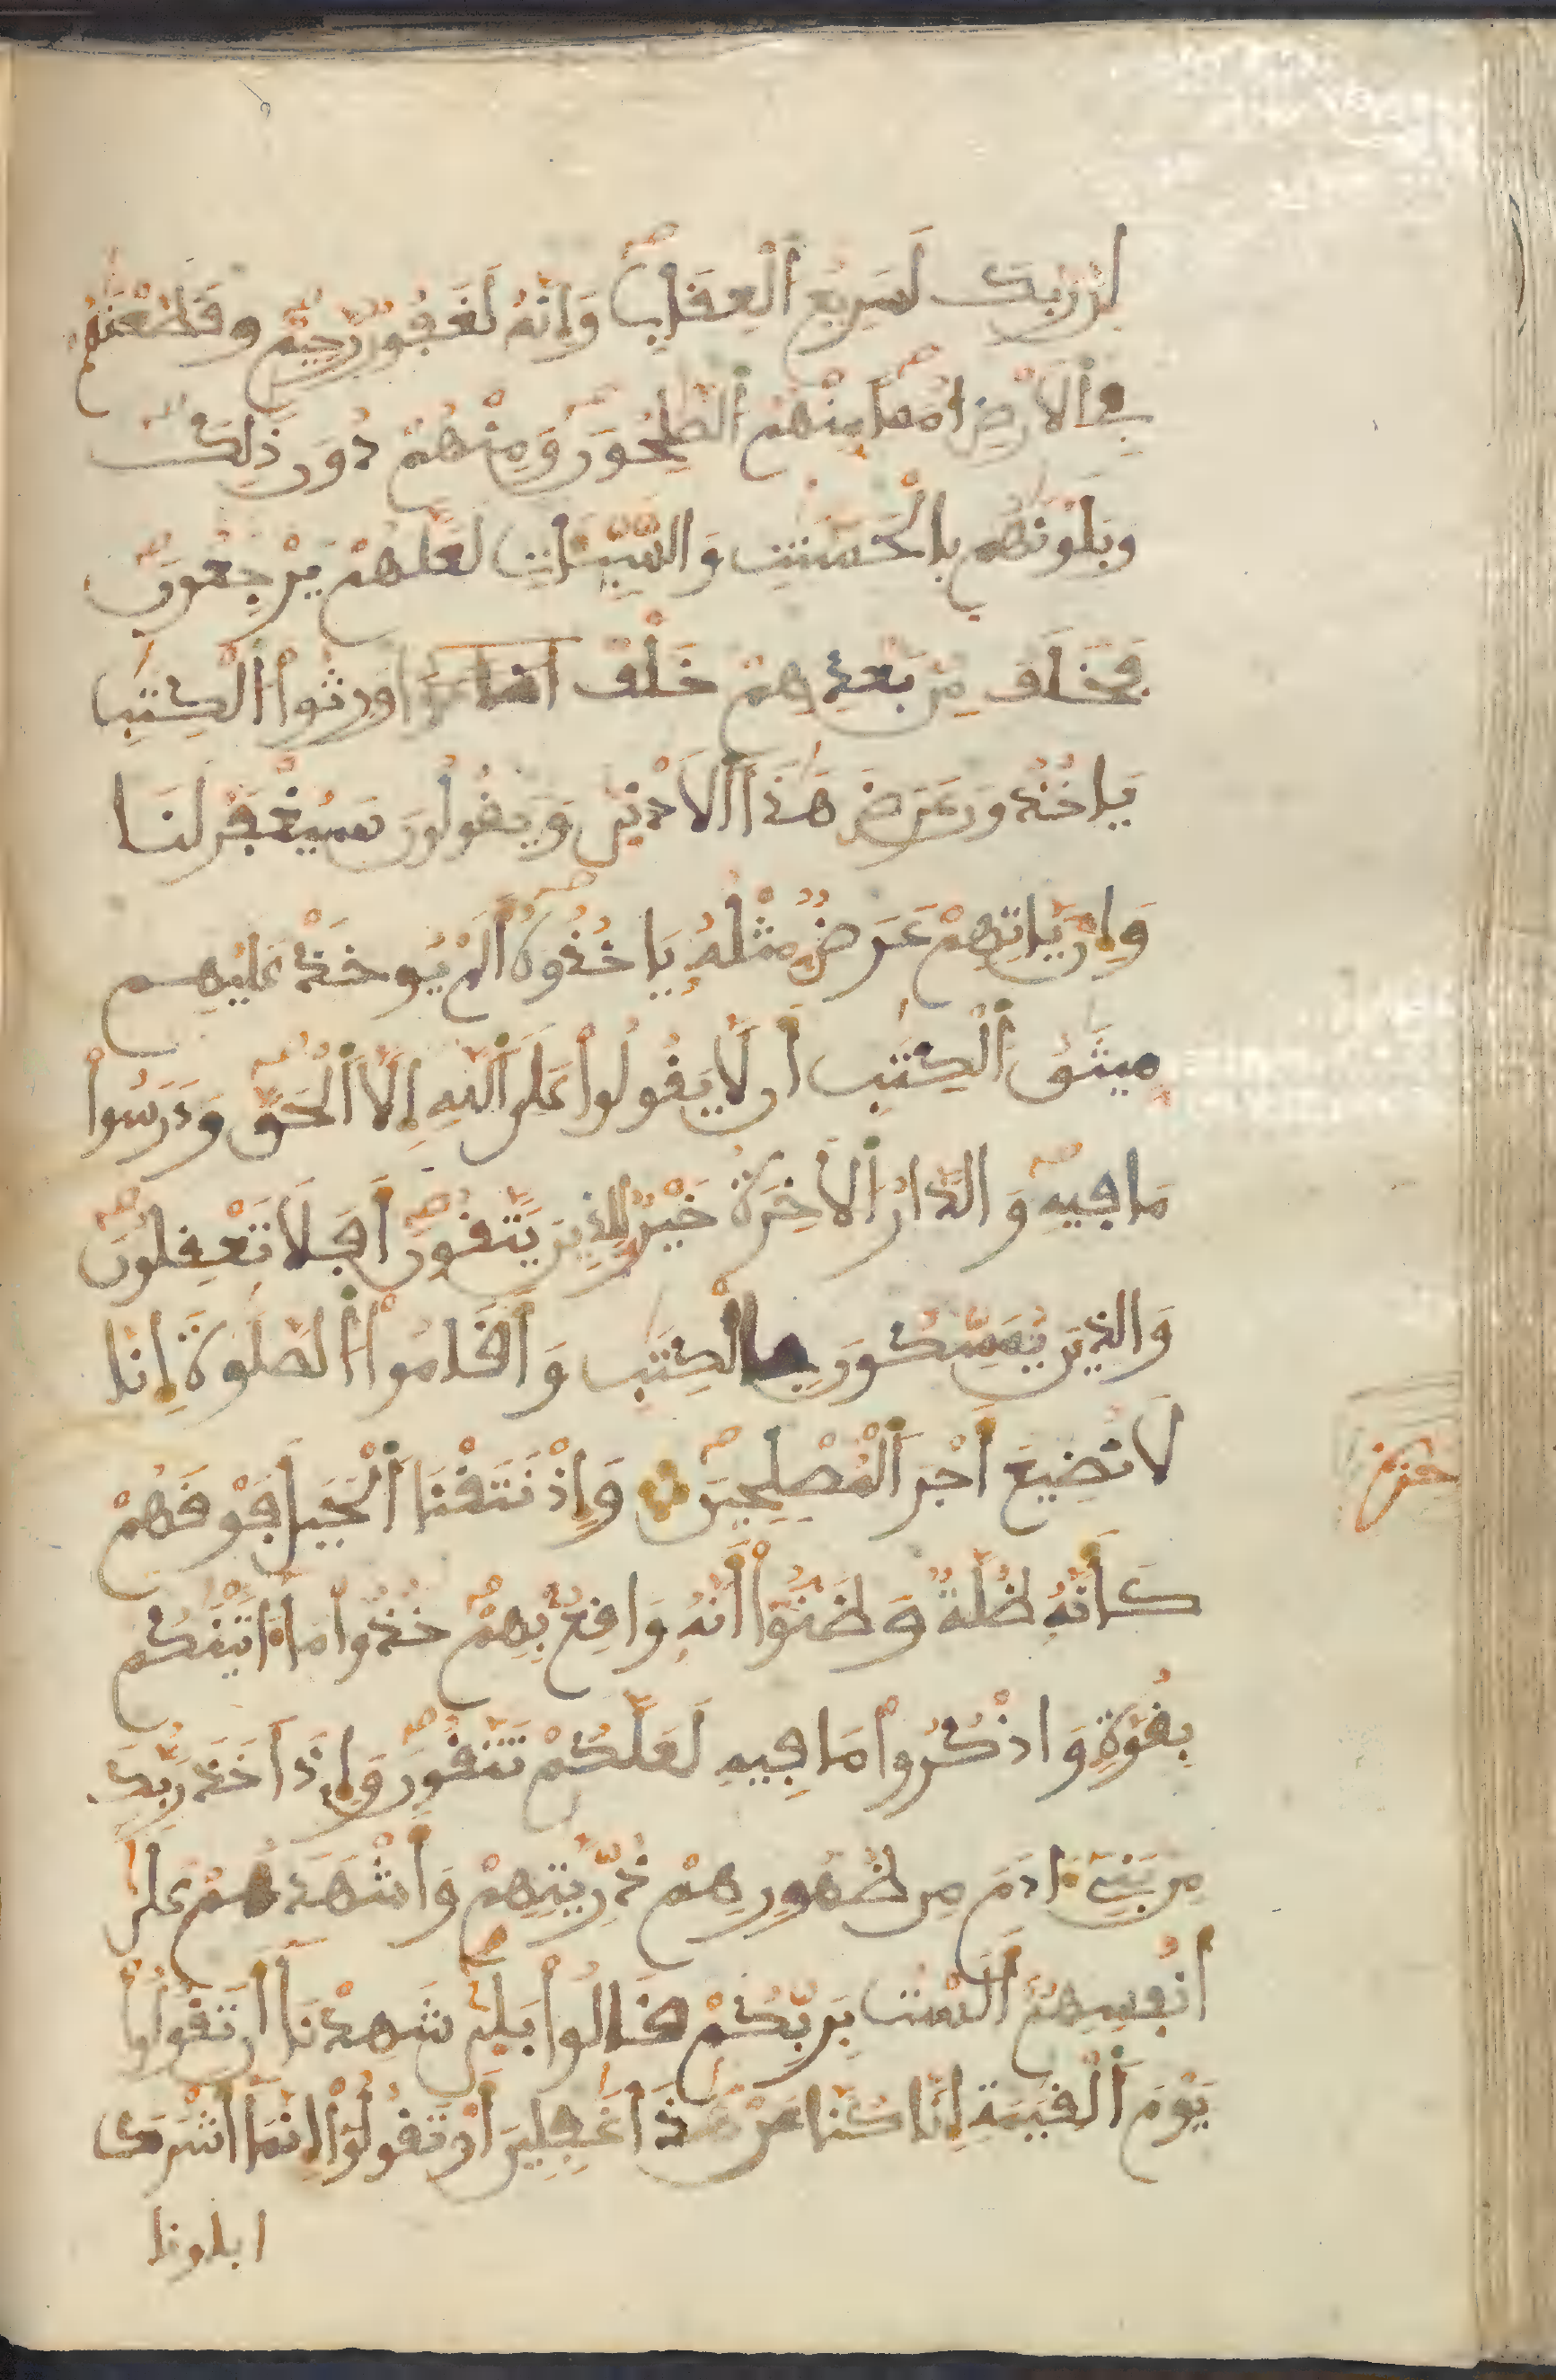 إن ربك لسريع العقاب وإنه لغفور رحيم وقطعنهم
في الأرض أمما منهم الصلحون ومنهم دون ذلك
وبلونهم بالحسنت والسيئات لعلهم يرجعون
فخلف من بعدهم خلف اورثوا الكتب
ياخذون عرض هذا الادنى ويقولون سيغفر لنا
وإن ياتهم عرض مثله ياخذوه ألم يوخذ عليهم
ميثق الكتب أن لا يقولوا على الله إلا الحق ودرسوا
ما فيه والدار الاخرة خير للذين يتقون أفلا تعقلون
والذين يمسكون بالكتب وأقاموا الصلوة إنا
لا نضيع أجر المصلحين وإذ نتقنا الجبل فوقهم
كأنه ظلة وظنوا أنه واقع بهم خذوا ما ءاتينكم
بقوة واذكروا ما فيه لعلكم تتقون وإذ أخذ ربك
من بني ءادم من ظهورهم ذريتهم وأشهدهم على
أنفسهم ألست بربكم قالوا بلى شهدنا أن تقولوا
يوم القيمة إنا كنا عن هذا غفلين أو تقولوا إنما أشرك
ابلونا
حزب